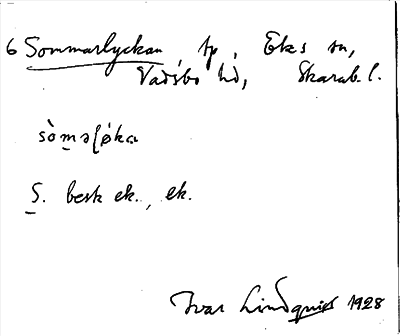 6 Sommarlyckan tp, Eks sn,
Vadsbo hd, Skarab. l.
sò̀məʃǿka
S. besk ek., ek.
Ivar Lindquist 1928